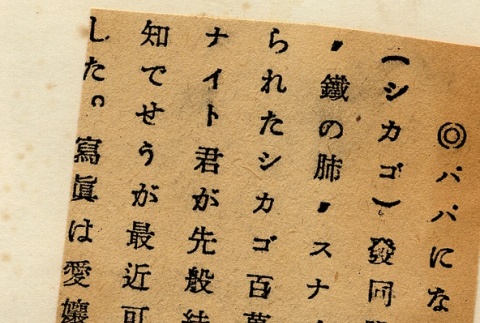 ◎パパにな
（シカゴ）發同
〃鐵の肺〃スナ
られたシカゴ百萬
ナイト君が先般結
知でせうが最近可
した。寫眞は愛孃